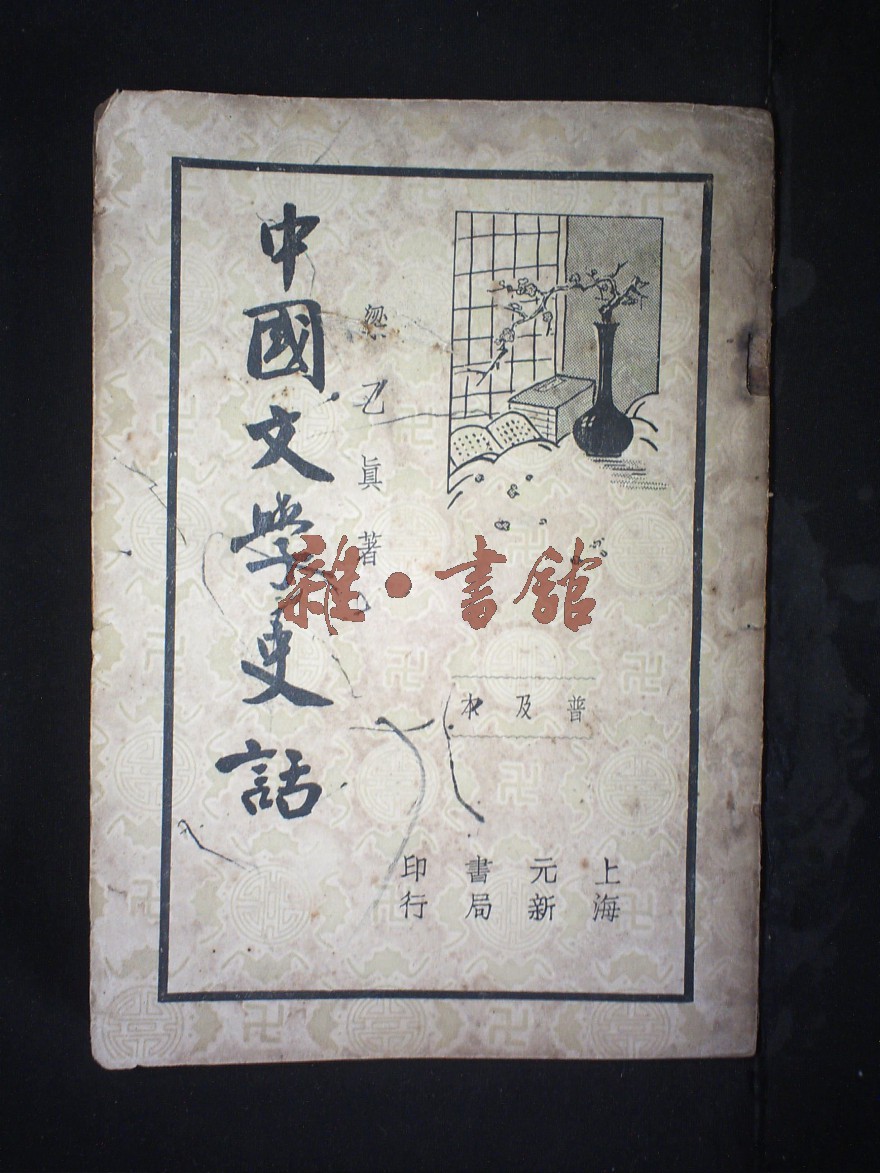 中國文學史話
梁乙眞著
普及本
上海元新書局印行
雜·書館